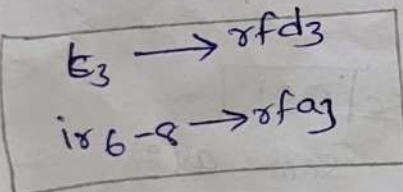 t₃ → rfd₃
ir6-8 → rfa₃